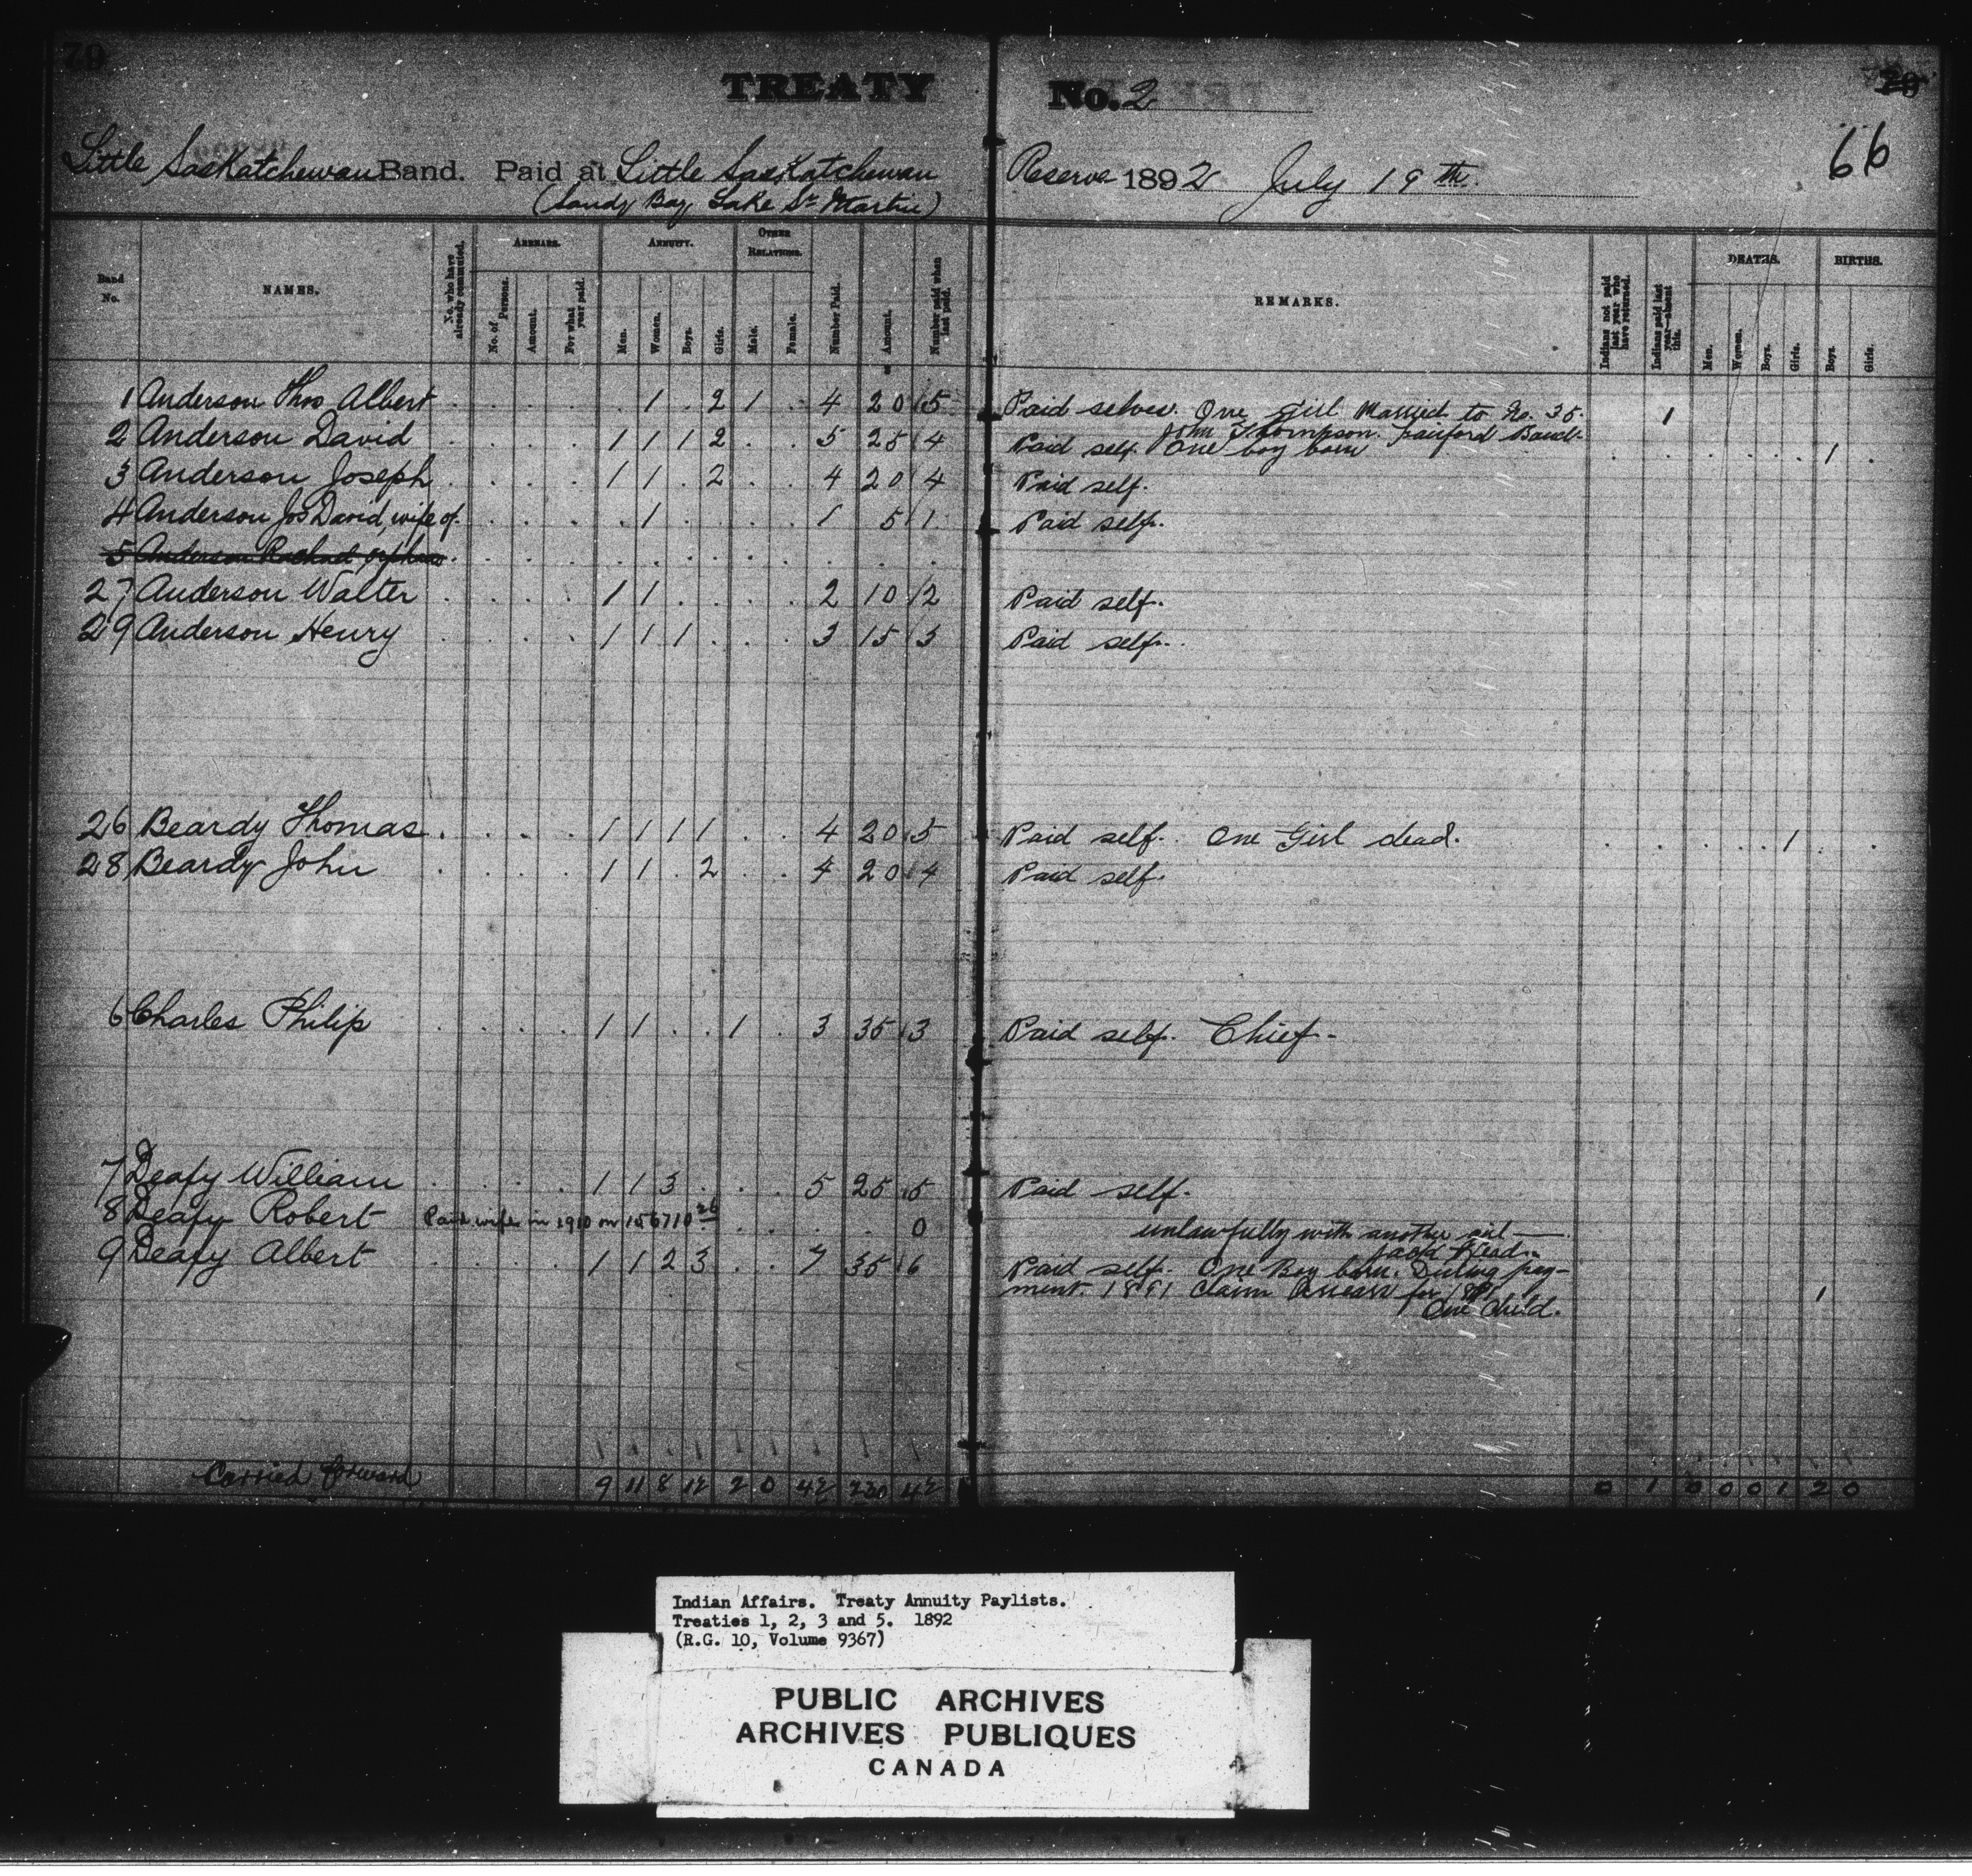 79
TREATY No. 2
66
Little Saskatchewan Band. Paid at Little Saskatchewan Reserve 1892 July 19th.
(Sandy Bay, Lake St. Martin)
Band No. NAMES. No. who have already commuted. ARREARS. No. of Persons. Amount. For what year paid. ANNUITY. Men. Women. Boys. Girls. OTHER RELATIONS. Male. Female. Number Paid. Amount. Number paid when last paid. REMARKS. Indians not paid last year who have returned. Indians paid last year—absent this. DEATHS. Men. Women. Boys. Girls. BIRTHS. Boys. Girls.
1 Anderson Thos Albert 1 2 1 4 20 5 Paid selves. One girl Married to No. 35. 1
John Thompson. Fairford Band.
2 Anderson David 1 1 1 2 5 25 4 Paid self. One boy born 1
3 Anderson Joseph 1 1 2 4 20 4 Paid self.
4 Anderson Jos David, wife of 1 1 5 1 Paid self.
5 Anderson Rachael orphan
27 Anderson Walter 1 1 2 10 2 Paid self.
29 Anderson Henry 1 1 1 3 15 3 Paid self.
26 Beardy Thomas 1 1 1 1 4 20 5 Paid self. One Girl dead. 1
28 Beardy John 1 1 2 4 20 4 Paid self.
6 Charles Philip 1 1 1 3 35 3 Paid self. Chief.
7 Deafy William 1 1 3 5 25 5 Paid self.
8 Deafy Robert Paid wife in 1910 0 unlawfully with another
Jack Head.
9 Deafy Albert 1 1 2 3 7 35 6 Paid self. One Boy born. During pay-
ment. 1891 Claim Arrears for 1891 1
One Child.
Carried forward 9 11 8 12 2 0 42 230 42 0 1 0 0 0 1 2 0
Indian Affairs. Treaty Annuity Paylists.
Treaties 1, 2, 3 and 5. 1892
(R.G. 10, Volume 9367)
PUBLIC ARCHIVES
ARCHIVES PUBLIQUES
CANADA